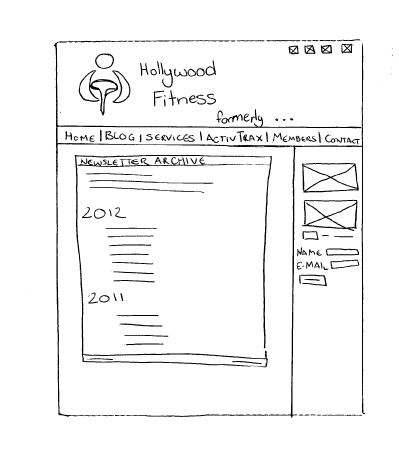 Hollywood
Fitness
formerly ...
HOME | BLOG | SERVICES | ACTIVTRAX | MEMBERS | CONTACT
NEWSLETTER ARCHIVE
2012
2011
NAME
E-MAIL